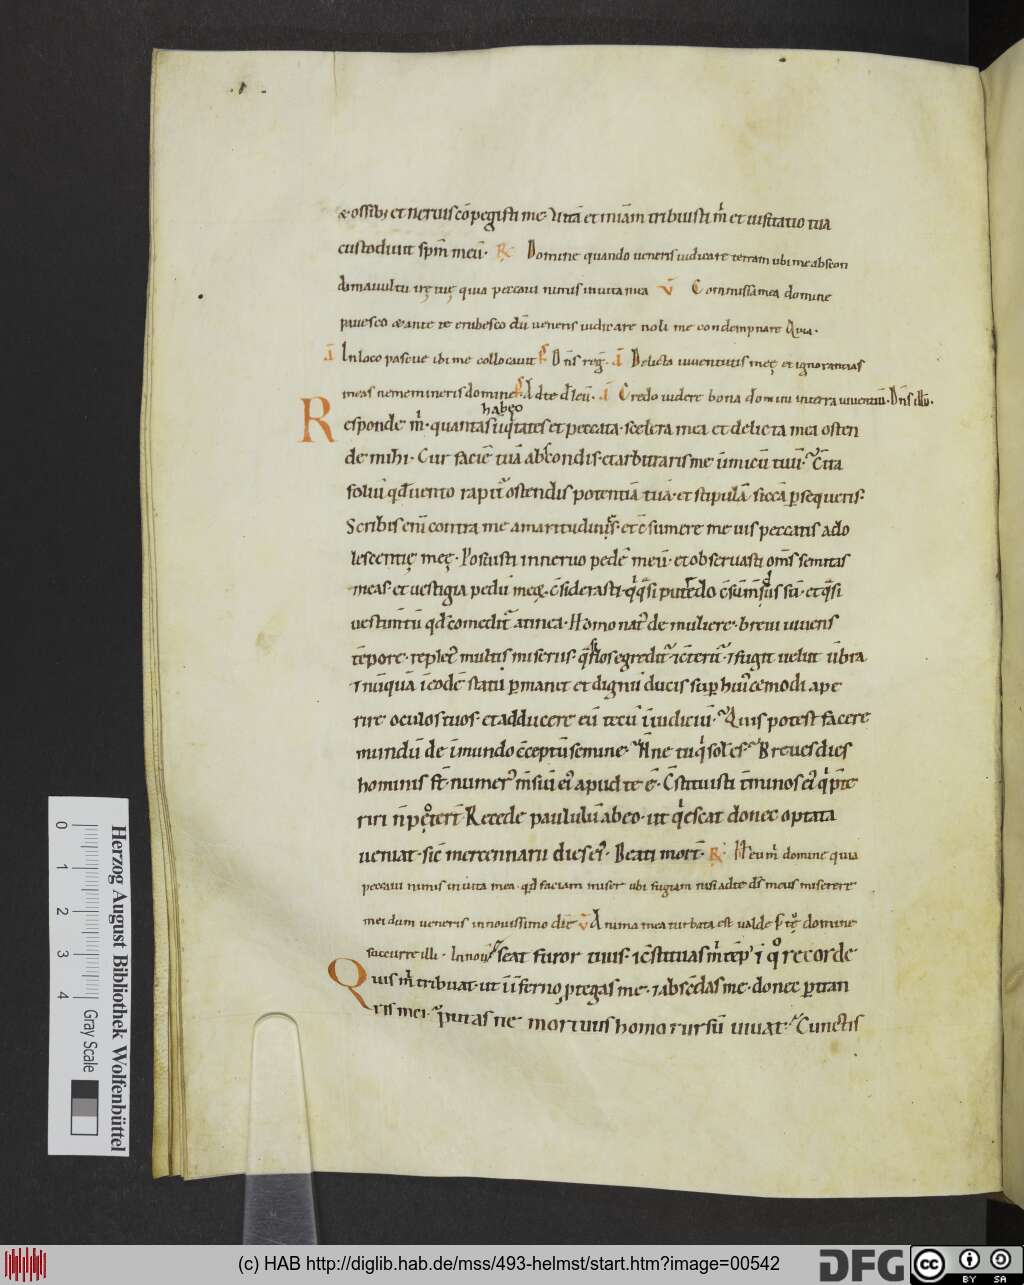 & ossib; et neruis cōpegisti me. Vitā et m̄iam tribuisti m̄ et uisitatio tua
custodiuit sp̄m meū. R̷ Domine quando ueneris iudicare terram ubi me abscon
dam a uultu irę tuę quia peccaui nimis in uita mea V̄ Commissa mea domine
pauesco & ante te erubesco dū ueneris iudicare noli me condempnare Quia.
Ā In loco pascue ibi me collocauit Ps Dn̄s reḡ. Ā Delicta iuuentutis meę et ignorantias
meas ne memineris domine. Ps Ad te dn̄e leū. Ā Credo uidere bona domini in terra uiuentiū. Dn̄s illū.
habeo
Responde m̄. quantas iniq̄tates et peccata. scelera mea et delicta mea osten
de mihi. Cur faciē tuā abscondis. et arbitraris me īimicū tuū. Cont̄a
foliū qd̄ uento rapit᷑ ostendis potentiā tuā. et stipulā siccā p̄sequeris.
Scribis eni᷑ contra me amaritudines. et c̄sumere me uis peccatis ado
lescentię meę. Posuisti in neruo pedē meū. et obseruasti om̄s semitas
meas. et uestigia pedū meoꝝ c̄siderasti. q̇ q̄si putredo c̄sumēdus sū. et q̄si
uestim̄tū qd̄ comedit᷑ a tinea. Homo nat᷑ de muliere. breui uiuens
tēpore. replet᷑ multis miseriis. q̄ flos egredit᷑ ⁊ c̄terit᷑. ⁊ fugit uelut ūbra
⁊ nūquā ī eodē statu p̄manet et dignū ducis sup̄ hui᷑cemodi ape
rire oculos tuos. et adducere eū tecū ī iudiciū. Quis potest facere
mundū de īmundo c̄ceptū semine. Nne tu q̇ sol᷑ es. Breues dies
hominis s̄t. numer᷑ m̄siū ei᷑ apud te ē. C̄stituisti t̄minos ei᷑ q̇ p̄te
riri n̄ pot̄ert̄ Recede paululū ab eo. ut q̇escat donec optata
ueniat. sic̄ mercennarii dies ei᷑. Beati mort̄. R̷ Heu m̄ domine quia
peccaui nimis in uita mea. qd̄ faciam miser ubi fugiam nisi ad te ds̄ meus miserere
mei dum ueneris in nouissimo die V̄ Anima mea turbata est ualde s; tu domine
succurre illi. In nouis. seat furor tuus. ⁊ c̄stituas m̄ tēp᷑ ī q̊ recorde
Quis m̄ tribuat. ut ī īferno p̄tegas me. ⁊ abscēdas me. donec p̄tran
ris mei. putas ne mortuus homo rursū uiuat. Cunctis
Herzog August Bibliothek Wolfenbüttel
0 1 2 3 4 Gray Scale
(c) HAB http://diglib.hab.de/mss/493-helmst/start.htm?image=00542
DFG cc BY SA